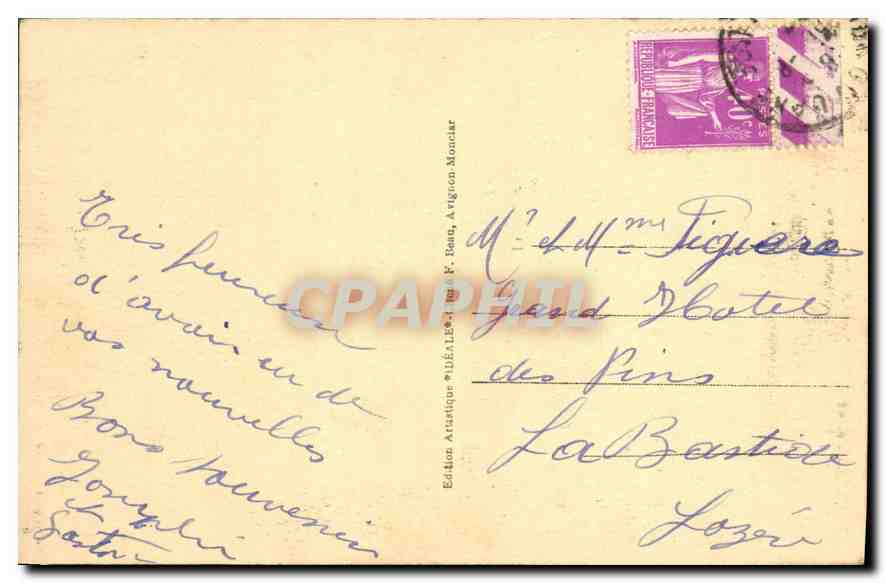 Très heureux
d'avoir eu de
vos nouvelles
Bons souvenirs
et
Edition Artistique "IDÉALE" F. Beau, Avignon-Monclar
REPUBLIQUE-FRANÇAISE
POSTES
Mr et Mme Figuere
Grand Hotel
des Pins
La Bastide
Lozère
CPAPHIL